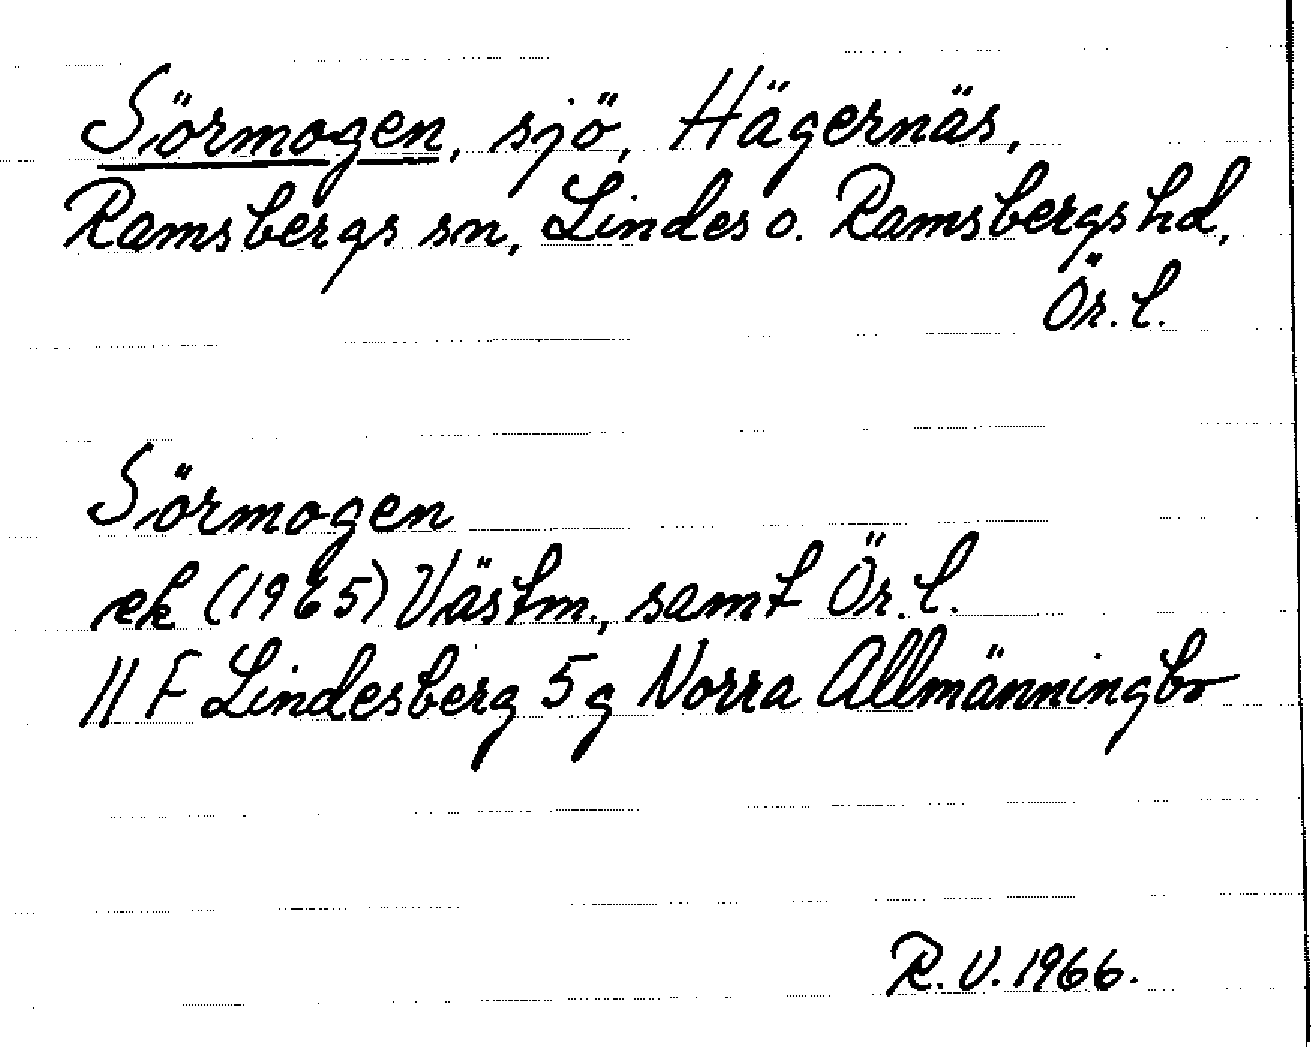 Sörmogen, sjö, Hägernäs,
Ramsbergs sn, Lindes o. Ramsbergs hd,
Ör. l.
Sörmogen
ek (1965) Västm., samt Ör. l.
11 F Lindesberg 5 g Norra Allmänningbo
R. V. 1966.